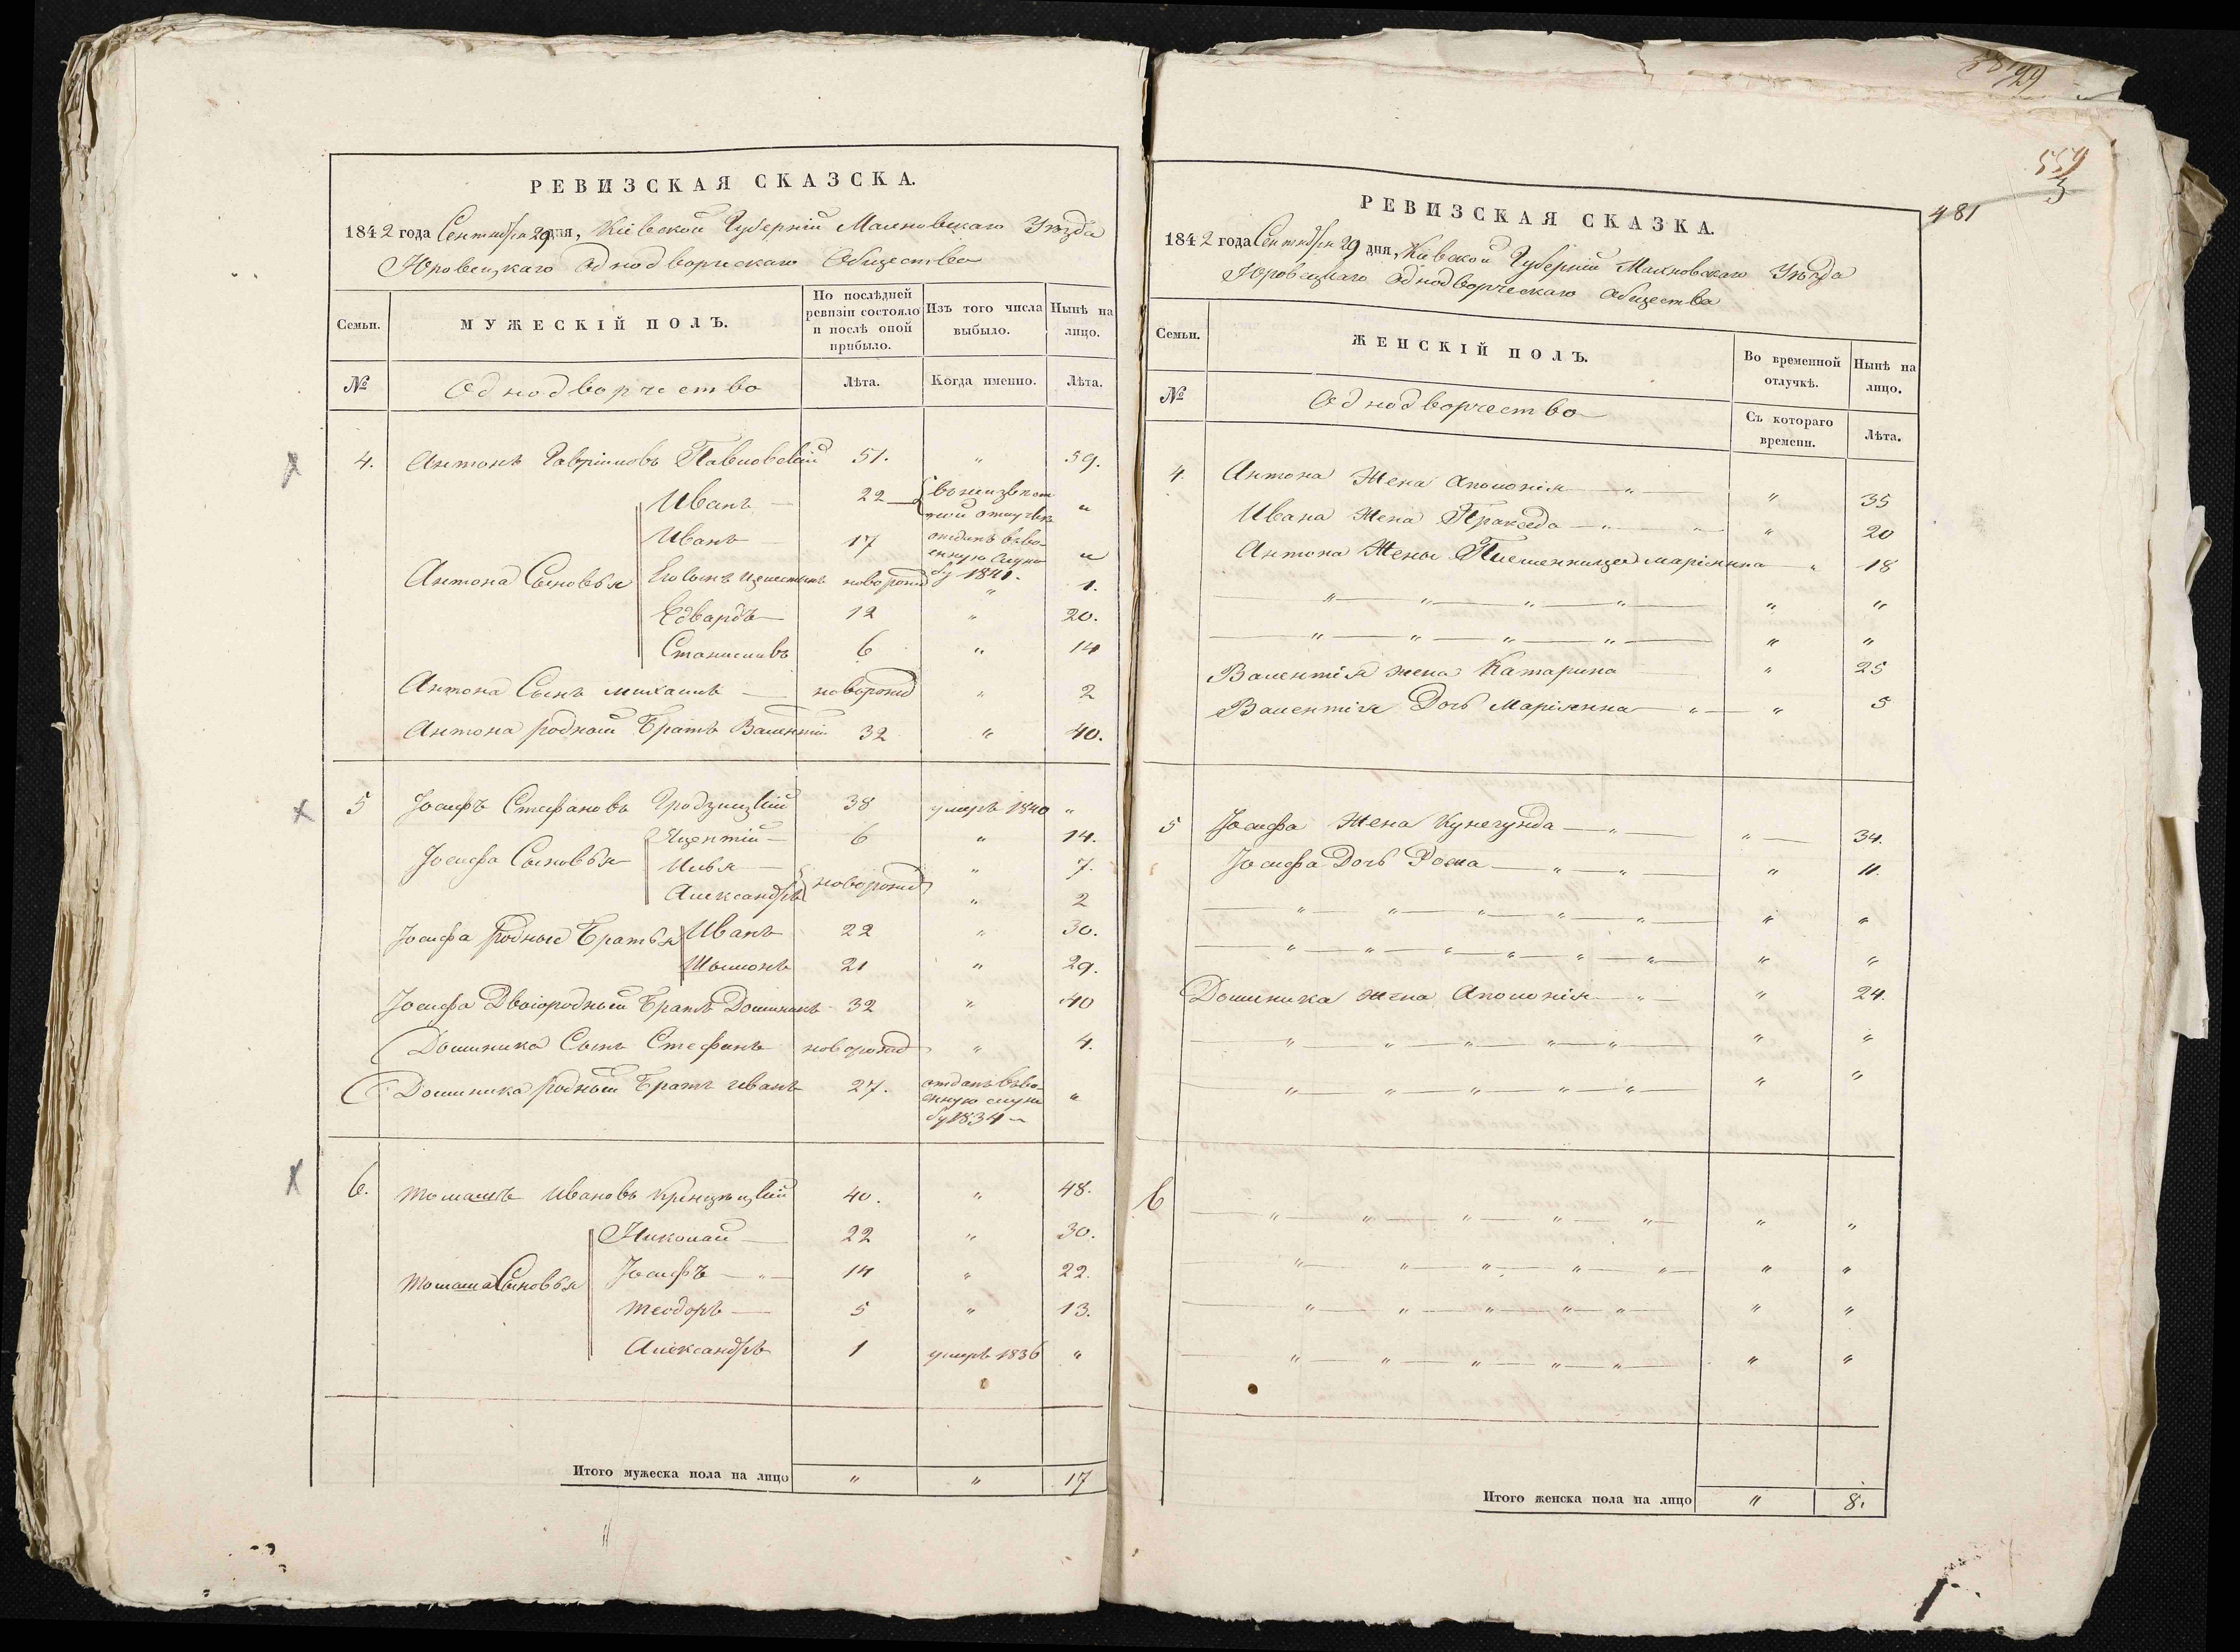 РЕВИЗСКАЯ СКАЗСКА.
1842 года Сентября 29 дня, Кіевской Губерніи Махновскаго Уѣзда
Юровецкаго Однодворческаго Общества
Семьи.
МУЖЕСКІЙ ПОЛЪ.
По послѣдней ревизіи состояло и послѣ оной прибыло.
Изъ того числа выбыло.
Нынѣ на лицо.
№ Однодворчество Лѣта. Когда именно. Лѣта.
4. Антонъ Гавріиловъ Павловскій 51. " 59.
Иванъ — 22 — въ неизвѣстной отлучкѣ "
Иванъ 17 отданъ въ военную службу 1841. "
Антона Сыновья Его сынъ новорожд " 1.
Едвардъ — 12 " 20.
Станиславъ 6 " 14
Антона Сынъ Михаилъ — новорожд " 2
Антона родной Братъ Валентій 32 " 40.
5 Іосифъ Стефановъ Гродзицкій 38 умеръ 1840 "
Яцентій — 6 " 14.
Іосифа Сыновья Илья — " 7.
Александръ новорожд " 2
Іосифа родные Братья Иванъ 22 " 30.
Шымонъ 21 " 29.
Іосифа Двоюродный Братъ Доминикъ 32 " 40
Доминика Сынъ Стефанъ новорожд " 4.
Доминика родный Братъ Иванъ 27. отданъ въ военную службу 1834 "
6. Томашъ Ивановъ 40. " 48.
Николай — 22 " 30.
Томаша Сыновья Іосифъ — " — 14 " 22.
Теодоръ — 5 " 13.
Александръ 1 умеръ 1836 "
Итого мужеска пола на лицо " " 17
29
559
3
481
РЕВИЗСКАЯ СКАЗКА.
1842 года Сентября 29 дня, Кіевской Губерніи Махновскаго Уѣзда
Юровецкаго Однодворческаго Общества
Семьи.
ЖЕНСКІЙ ПОЛЪ.
Во временной отлучкѣ.
Нынѣ на лицо.
№ Однодворчество Съ котораго времени. Лѣта.
4. Антона Жена Аполонія — " — " 35
Ивана Жена Пракседа — " — " — " 20
Антона Жены Племенница Маріянна " 18
— " — " — " — " — " "
— " — " — " — " — " "
Валентія жена Катарина " 25
Валентія Дочь Маріянна — " — " 5
5 Іосифа Жена Кунегунда — " — " — 34.
Іосифа Дочь Роза — " — " — " 11.
— " — " — " — " — " — " "
— " — " — " — " — " — " — " "
Доминика жена Аполонія — " — " 24.
" — " — " — " — " " "
" — " — " — " — " " "
6 — " — " — " — " — " — " "
" — " — " — " — " — " "
" — " — " — " — " — " "
— " — " — " — " — " — " "
Итого женска пола на лицо " 8.